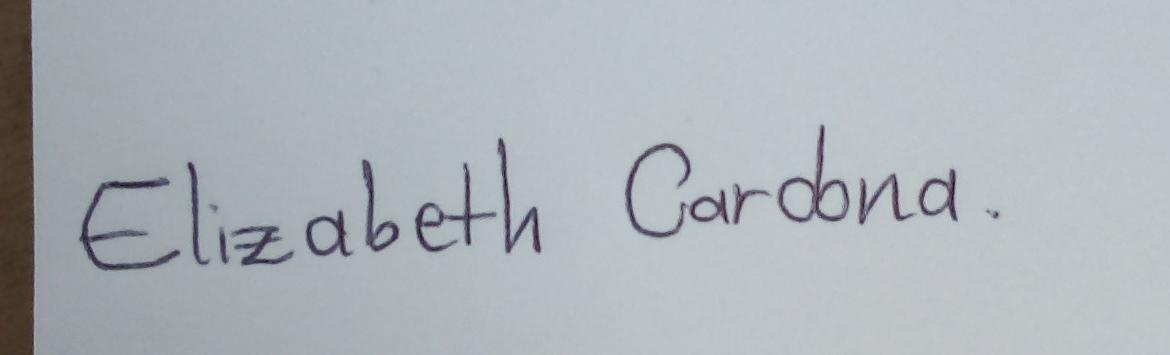 Elizabeth Cardona.